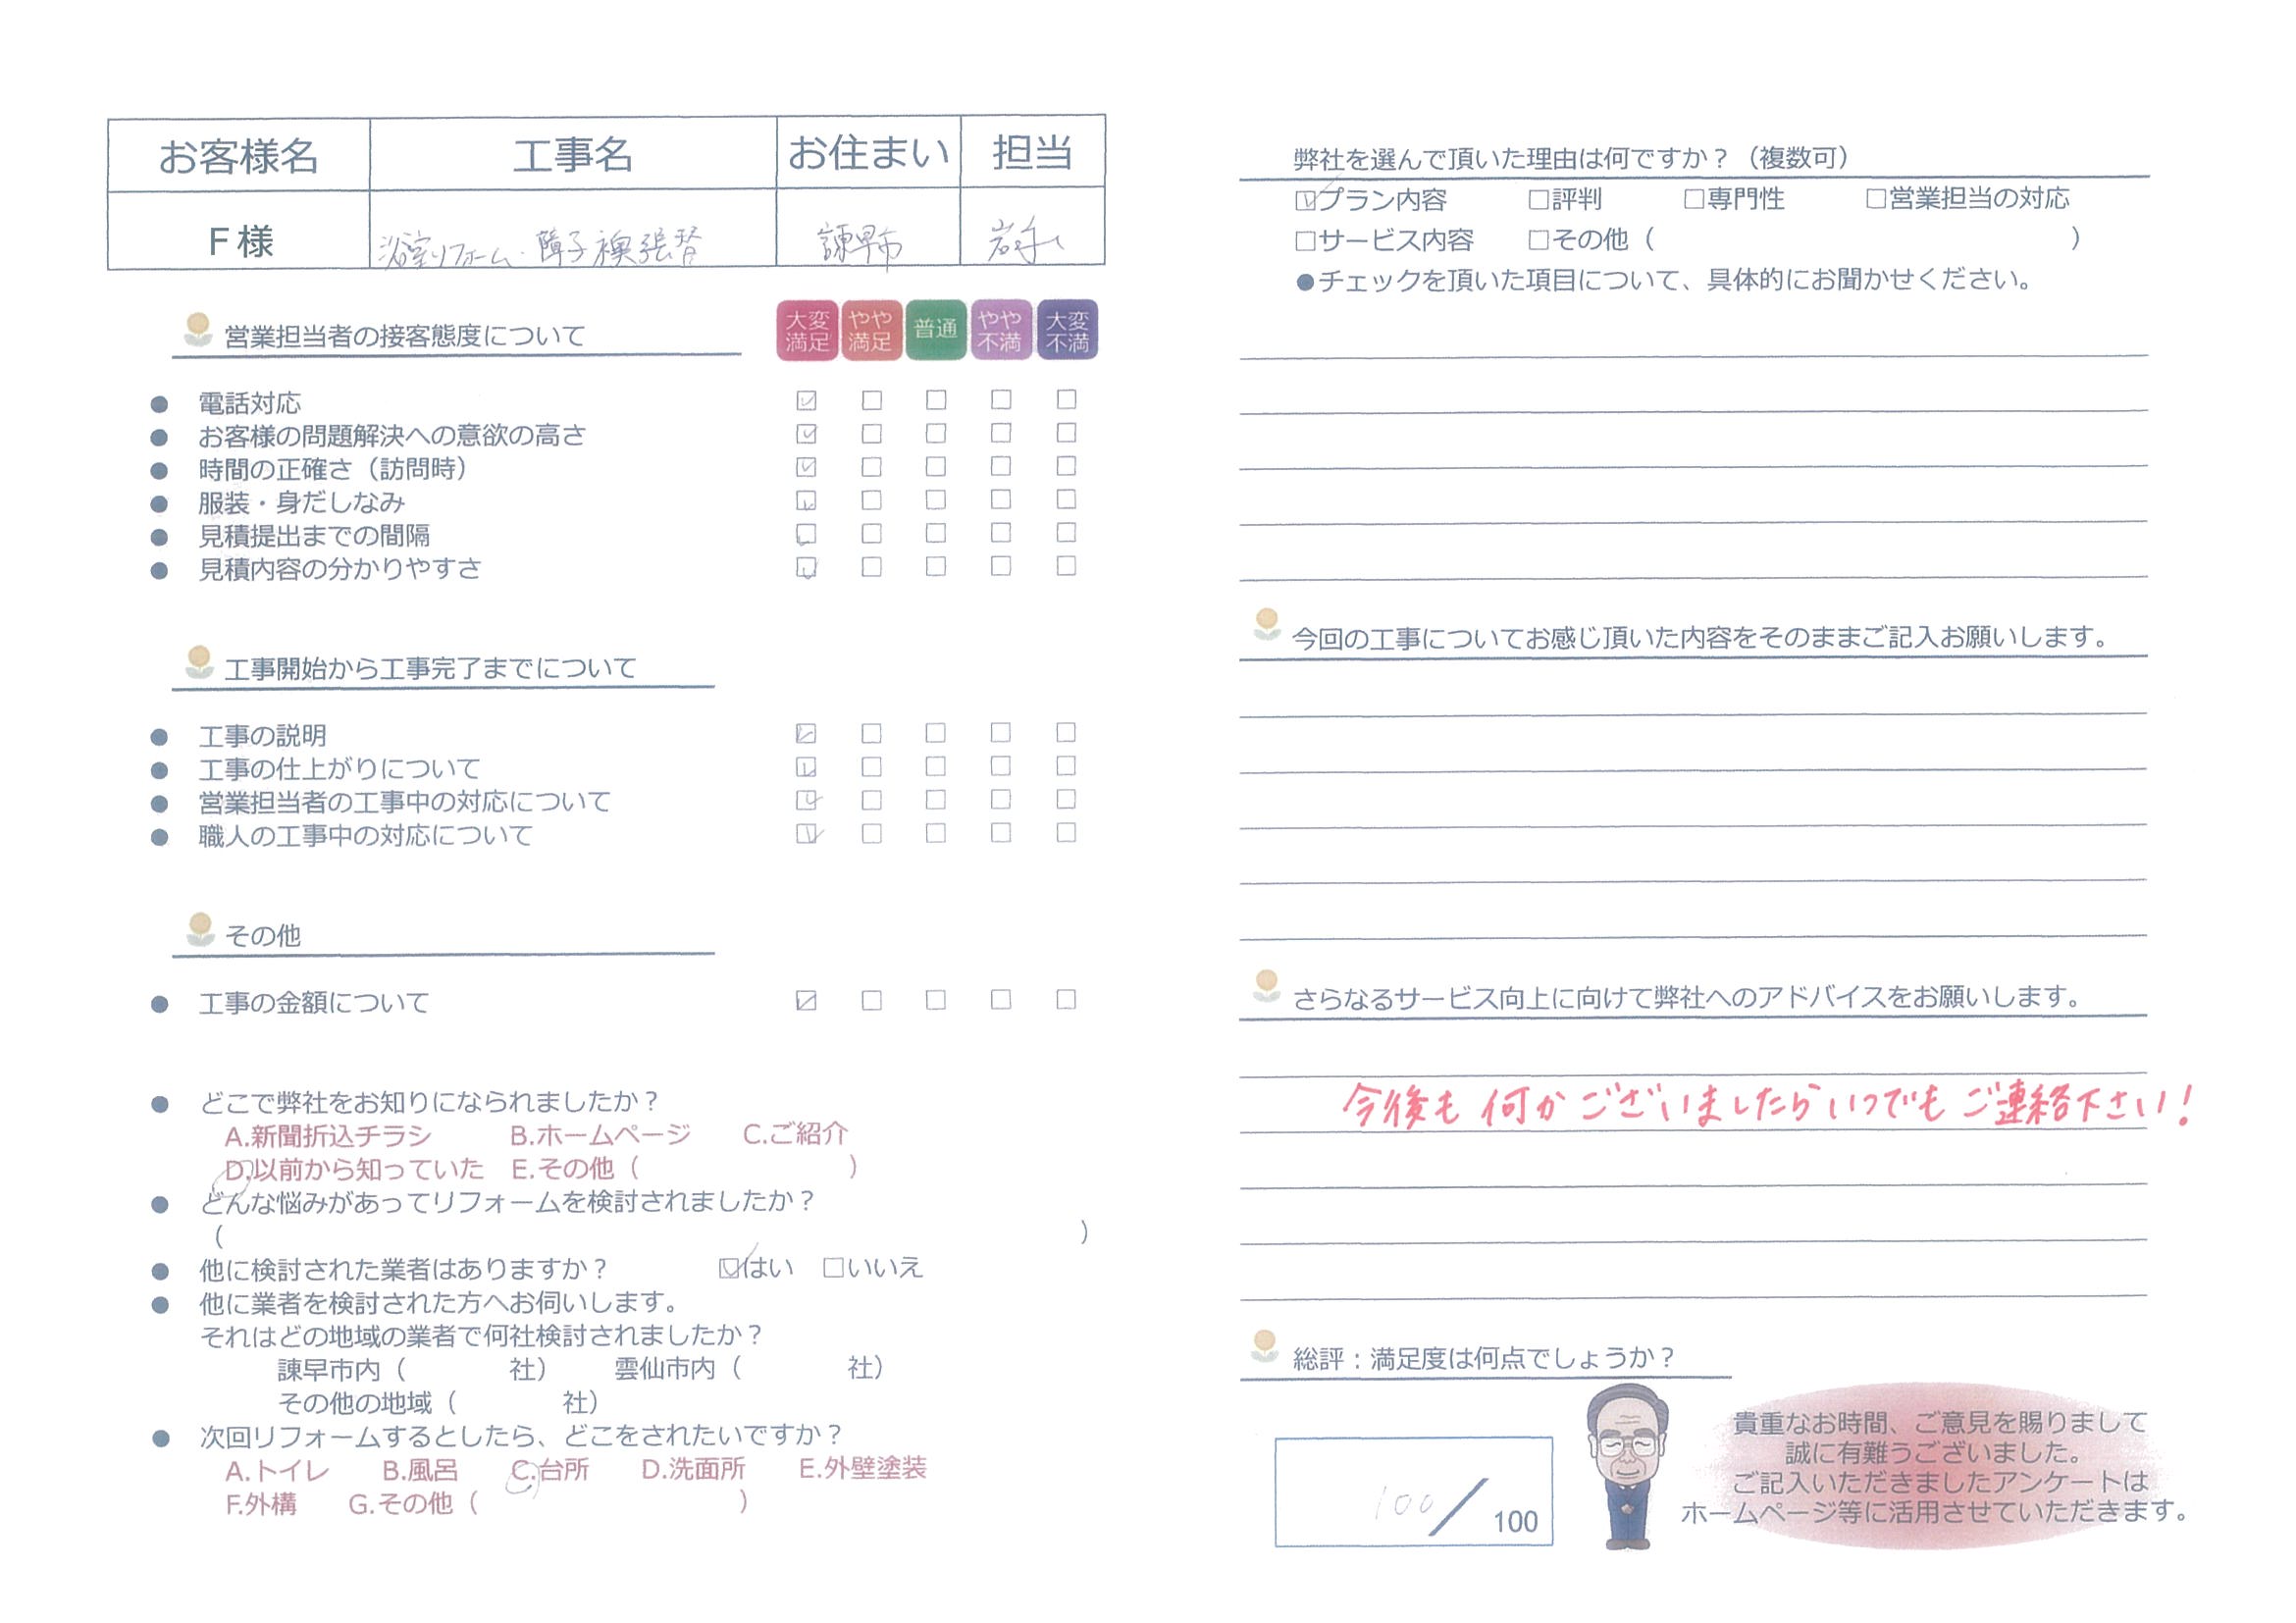 お客様名 工事名 お住まい 担当
F様 浴室リフォーム・障子襖張替 諫早市 岩永
営業担当者の接客態度について 大変満足 やや満足 普通 やや不満 大変不満
● 電話対応 ☑ □ □ □ □
● お客様の問題解決への意欲の高さ ☑ □ □ □ □
● 時間の正確さ（訪問時） ☑ □ □ □ □
● 服装・身だしなみ ☑ □ □ □ □
● 見積提出までの間隔 ☑ □ □ □ □
● 見積内容の分かりやすさ ☑ □ □ □ □
工事開始から工事完了までについて
● 工事の説明 ☑ □ □ □ □
● 工事の仕上がりについて ☑ □ □ □ □
● 営業担当者の工事中の対応について ☑ □ □ □ □
● 職人の工事中の対応について ☑ □ □ □ □
その他
● 工事の金額について ☑ □ □ □ □
● どこで弊社をお知りになられましたか？
A.新聞折込チラシ B.ホームページ C.ご紹介
D.以前から知っていた E.その他（ ）
● どんな悩みがあってリフォームを検討されましたか？
（ ）
● 他に検討された業者はありますか？ ☑はい □いいえ
● 他に業者を検討された方へお伺いします。
それはどの地域の業者で何社検討されましたか？
諫早市内（ 社） 雲仙市内（ 社）
その他の地域（ 社）
● 次回リフォームするとしたら、どこをされたいですか？
A.トイレ B.風呂 C.台所 D.洗面所 E.外壁塗装
F.外構 G.その他（ ）
弊社を選んで頂いた理由は何ですか？（複数可）
☑プラン内容 □評判 □専門性 □営業担当の対応
□サービス内容 □その他（ ）
●チェックを頂いた項目について、具体的にお聞かせください。
今回の工事についてお感じ頂いた内容をそのままご記入お願いします。
さらなるサービス向上に向けて弊社へのアドバイスをお願いします。
今後も何かございましたらいつでもご連絡下さい！
総評：満足度は何点でしょうか？
100／100
貴重なお時間、ご意見を賜りまして
誠に有難うございました。
ご記入いただきましたアンケートは
ホームページ等に活用させていただきます。